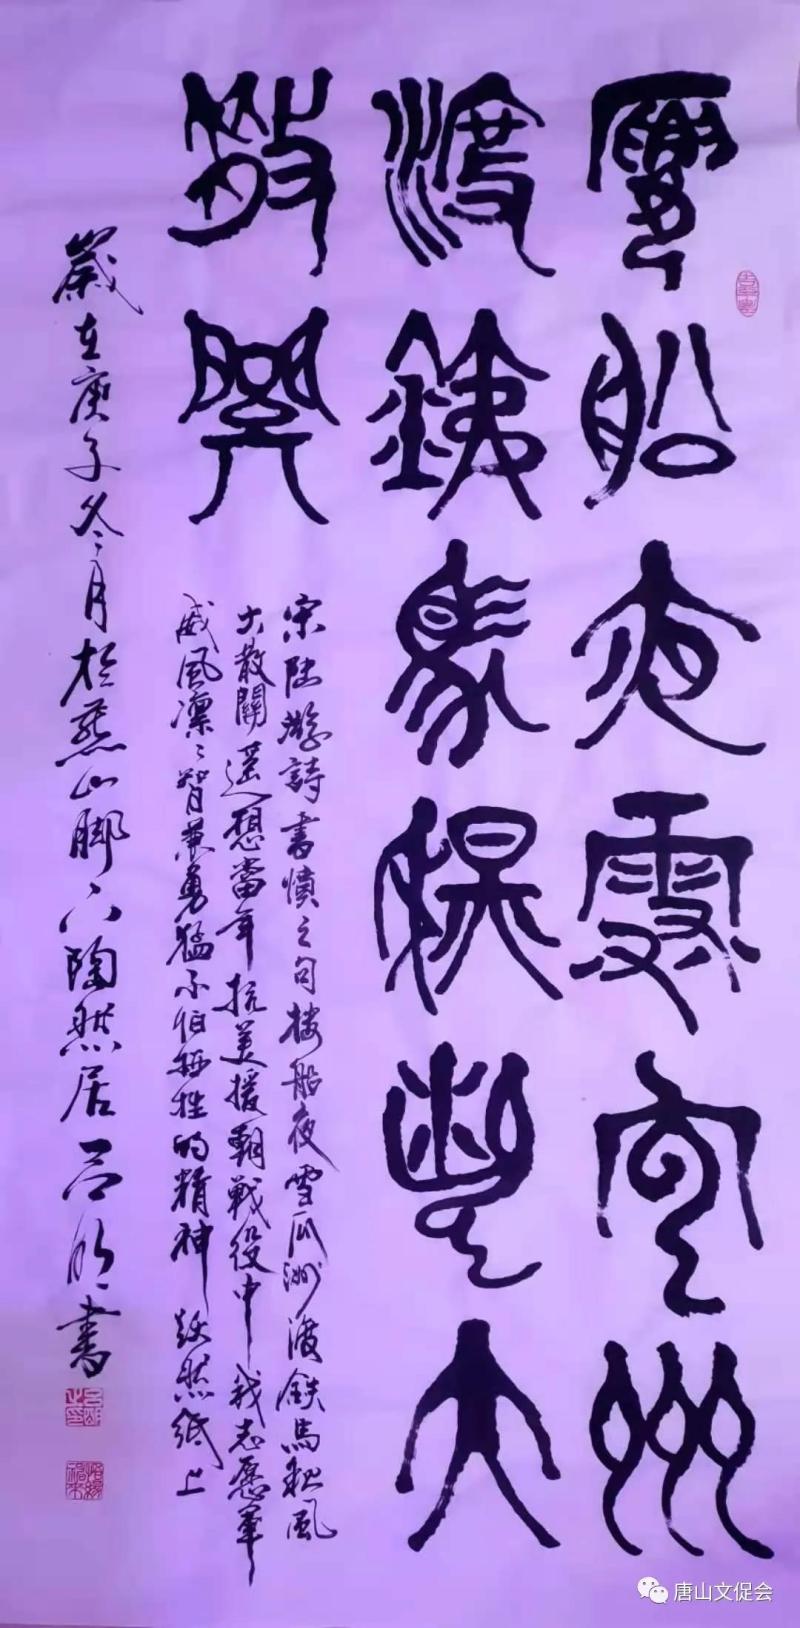 樓船夜雪瓜州
渡鐵馬秋風大
散關
宋陸游詩書憤之句樓船夜雪瓜洲渡鉄馬秋風
大散關遥想當年抗美援朝戰役中我志愿軍
威風凛〻智兼勇猛不怕犧牲的精神跃然紙上
歲在庚子冬月於燕山脚下陶然居書
唐山文促会